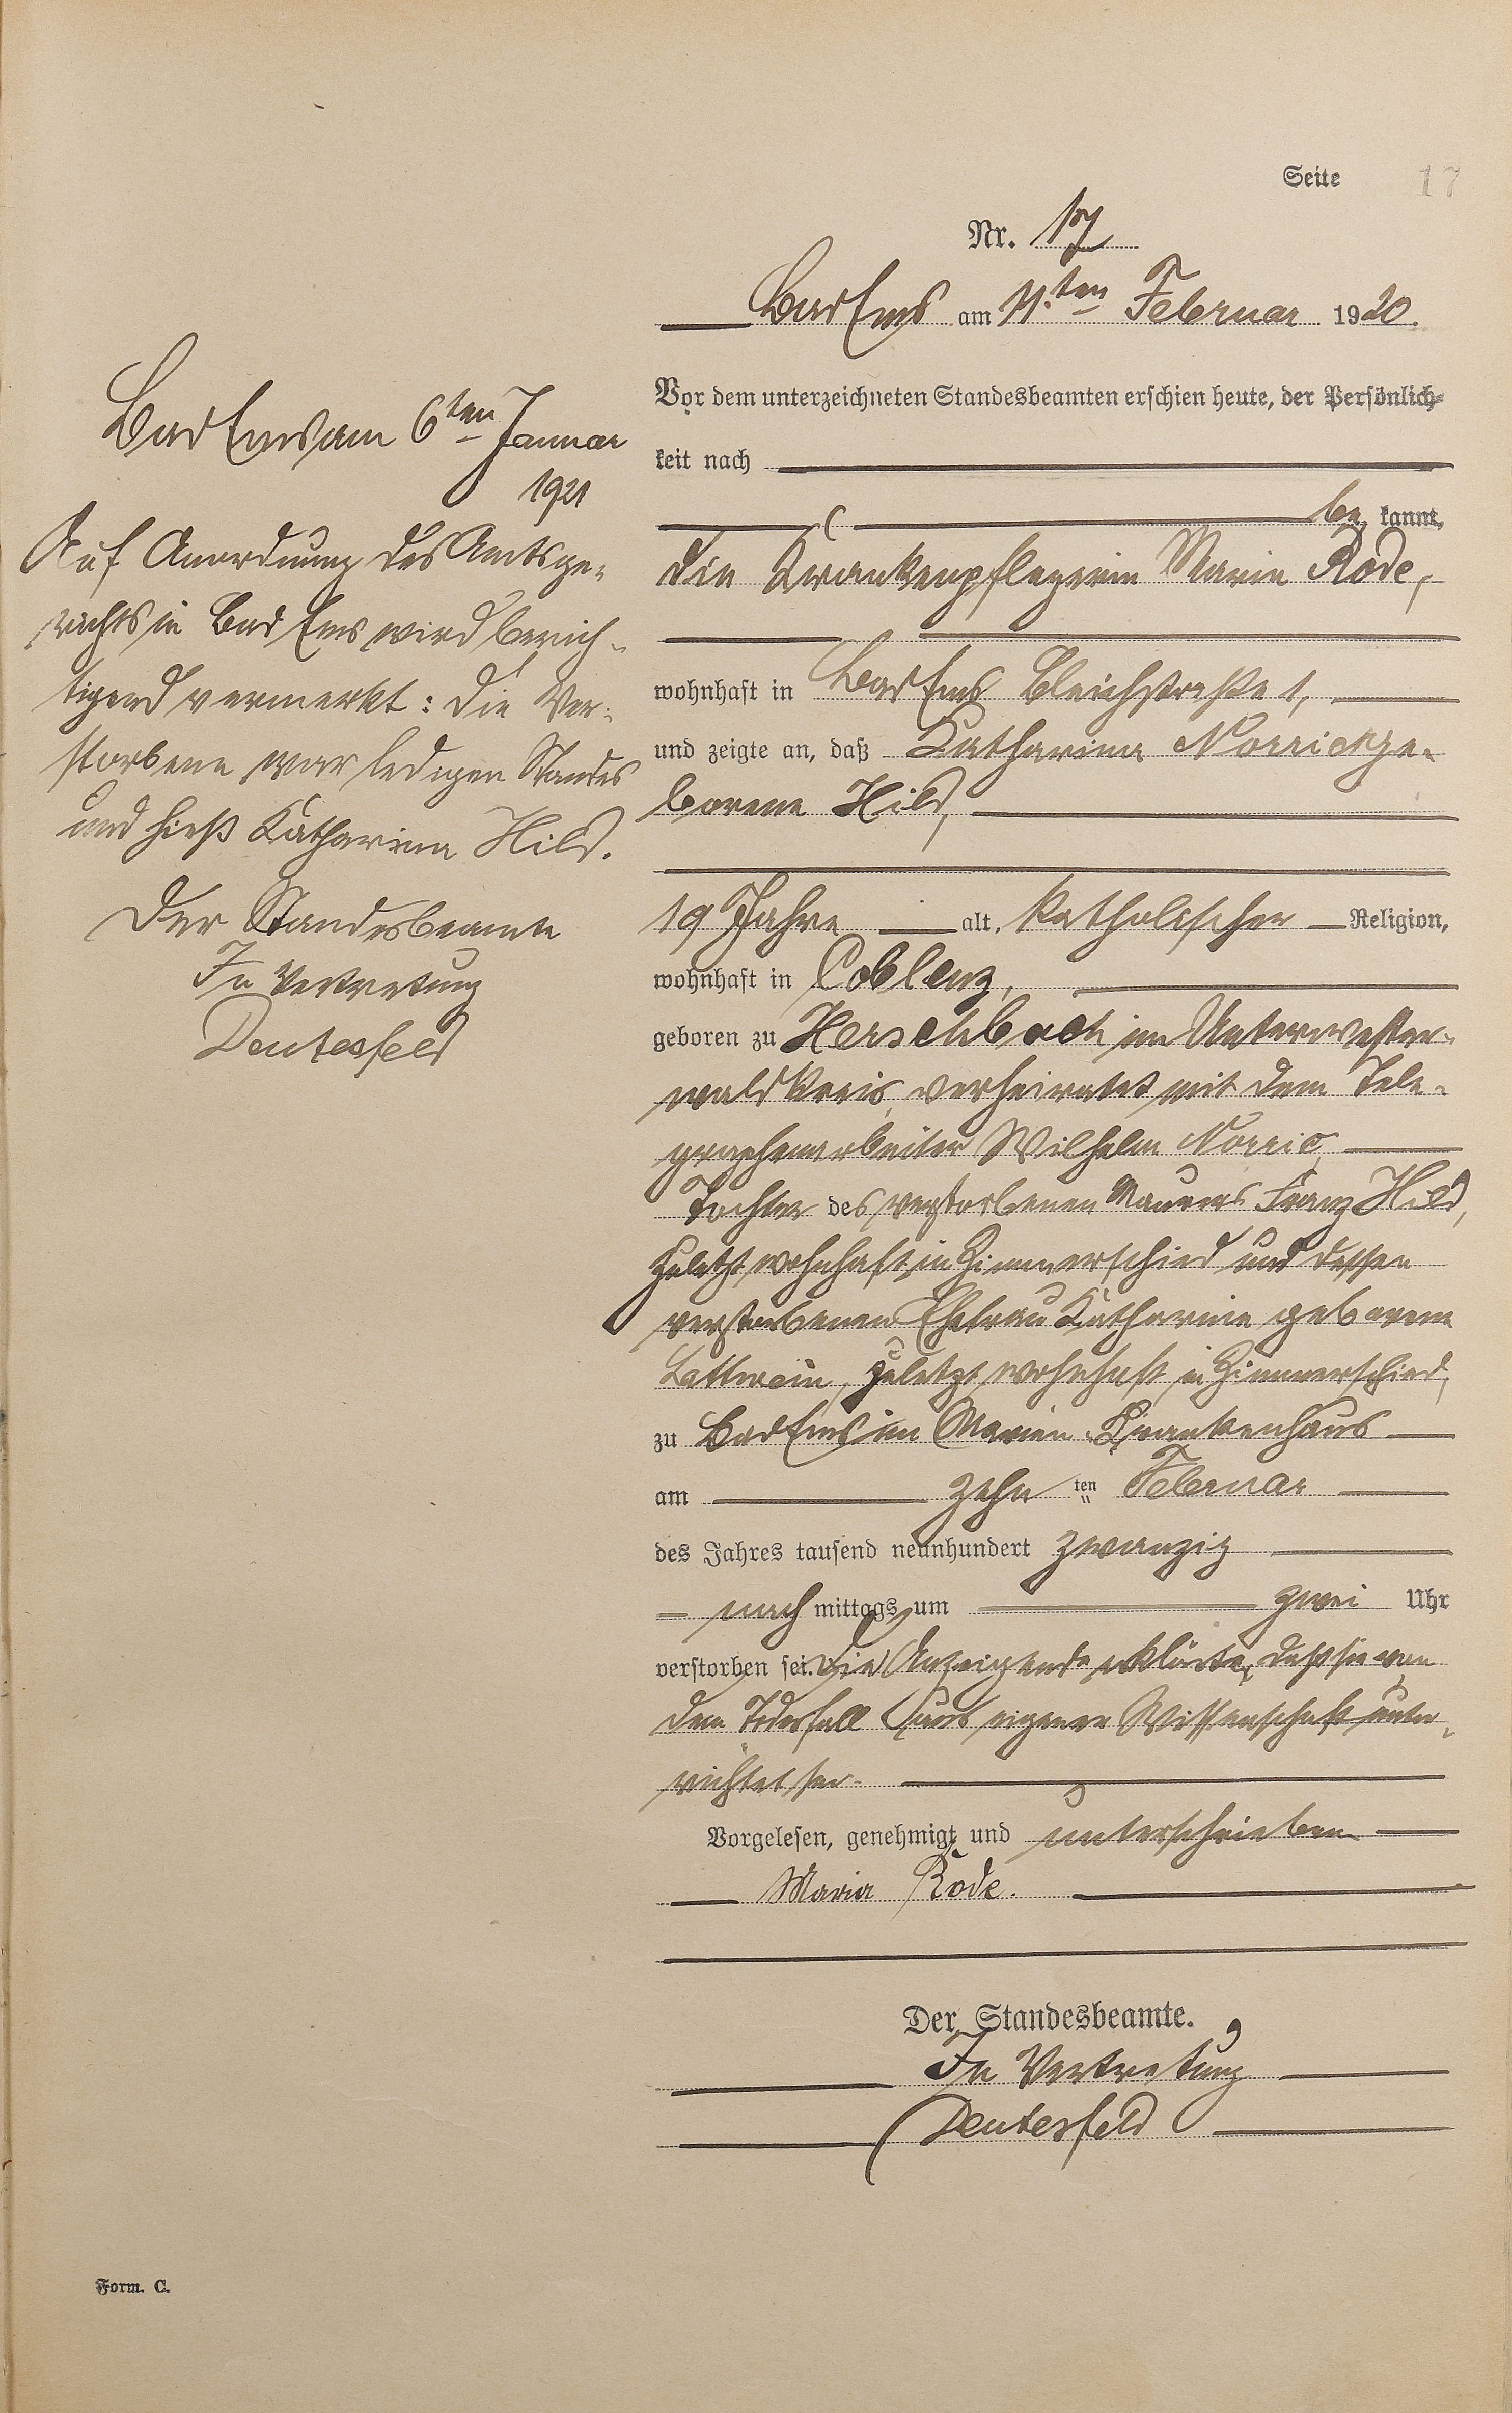 Seite 17
Nr. 17
Bad Ems am 11.ten Februar 1920.
Vor dem unterzeichneten Standesbeamten erschien heute, der Persönlich-
keit nach
be kannt,
die Krankenpflegerin Maria Rode,
wohnhaft in Bad Ems Bleichstraße 1,
und zeigte an, daß Katharina Norrick ge-
borene Hild,
19 Jahre alt, katholischer Religion,
wohnhaft in Coblenz,
geboren zu Herschbach im Unterwester-
waldkreis, verheiratet mit dem Tele-
graphenarbeiter Wilhelm Norric,
Tochter des verstorbenen Maurers Franz Hild,
zuletzt wohnhaft in Zimmerschied und dessen
verstorbenen Ehefrau Katharina geborene
zuletzt wohnhaft in Zimmerschied,
zu Bad Ems im Marien-Krankenhaus
am zehn ten Februar
des Jahres tausend neunhundert zwanzig
nach mittags um zwei Uhr
verstorben sei. Die Anzeigende erklärte, daß sie von
dem Todesfall aus eigener Wissenschaft unter-
richtet sei.
Vorgelesen, genehmigt und unterschrieben
Maria Rode.
Der Standesbeamte.
In Vertretung
Deutesfeld
Bad Ems am 6ten Januar
1921
Auf Anordnung des Amtsge-
richts in Bad Ems wird berich-
tigend vermerkt: Die Ver-
storbene war ledigen Standes
und hieß Katharina Hild.
Der Standesbeamte
In Vertretung
Deutesfeld
Form. C.